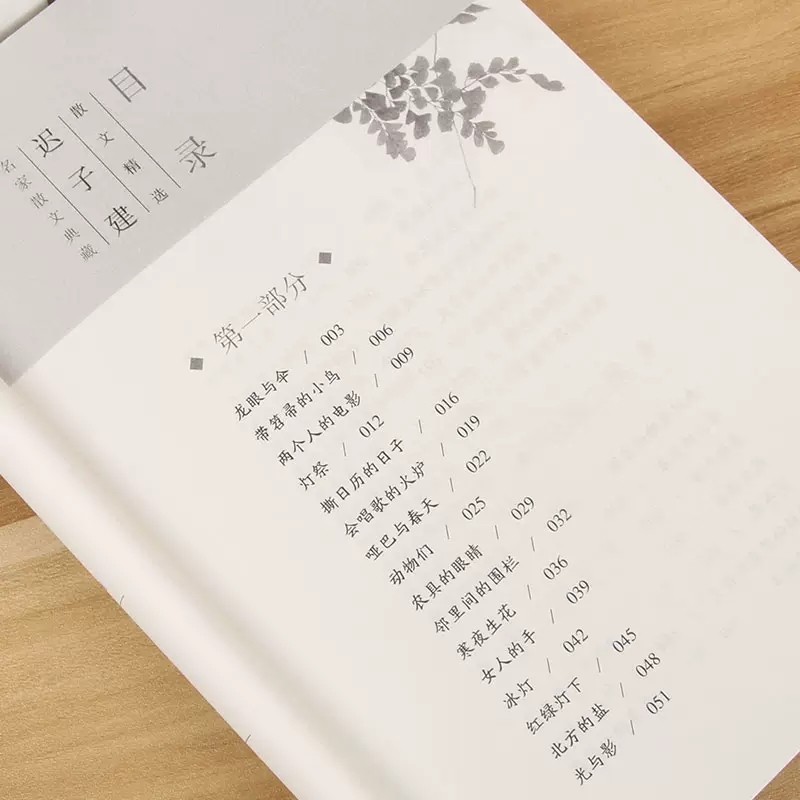 目录
散文精选
迟子建
名家散文典藏
第一部分
龙眼与伞 / 003
带笤帚的小鸟 / 006
两个人的电影 / 009
灯祭 / 012
撕日历的日子 / 016
会唱歌的火炉 / 019
哑巴与春天 / 022
动物们 / 025
农具的眼睛 / 029
邻里间的围栏 / 032
寒夜生花 / 036
女人的手 / 039
冰灯 / 042
红绿灯下 / 045
北方的盐 / 048
光与影 / 051